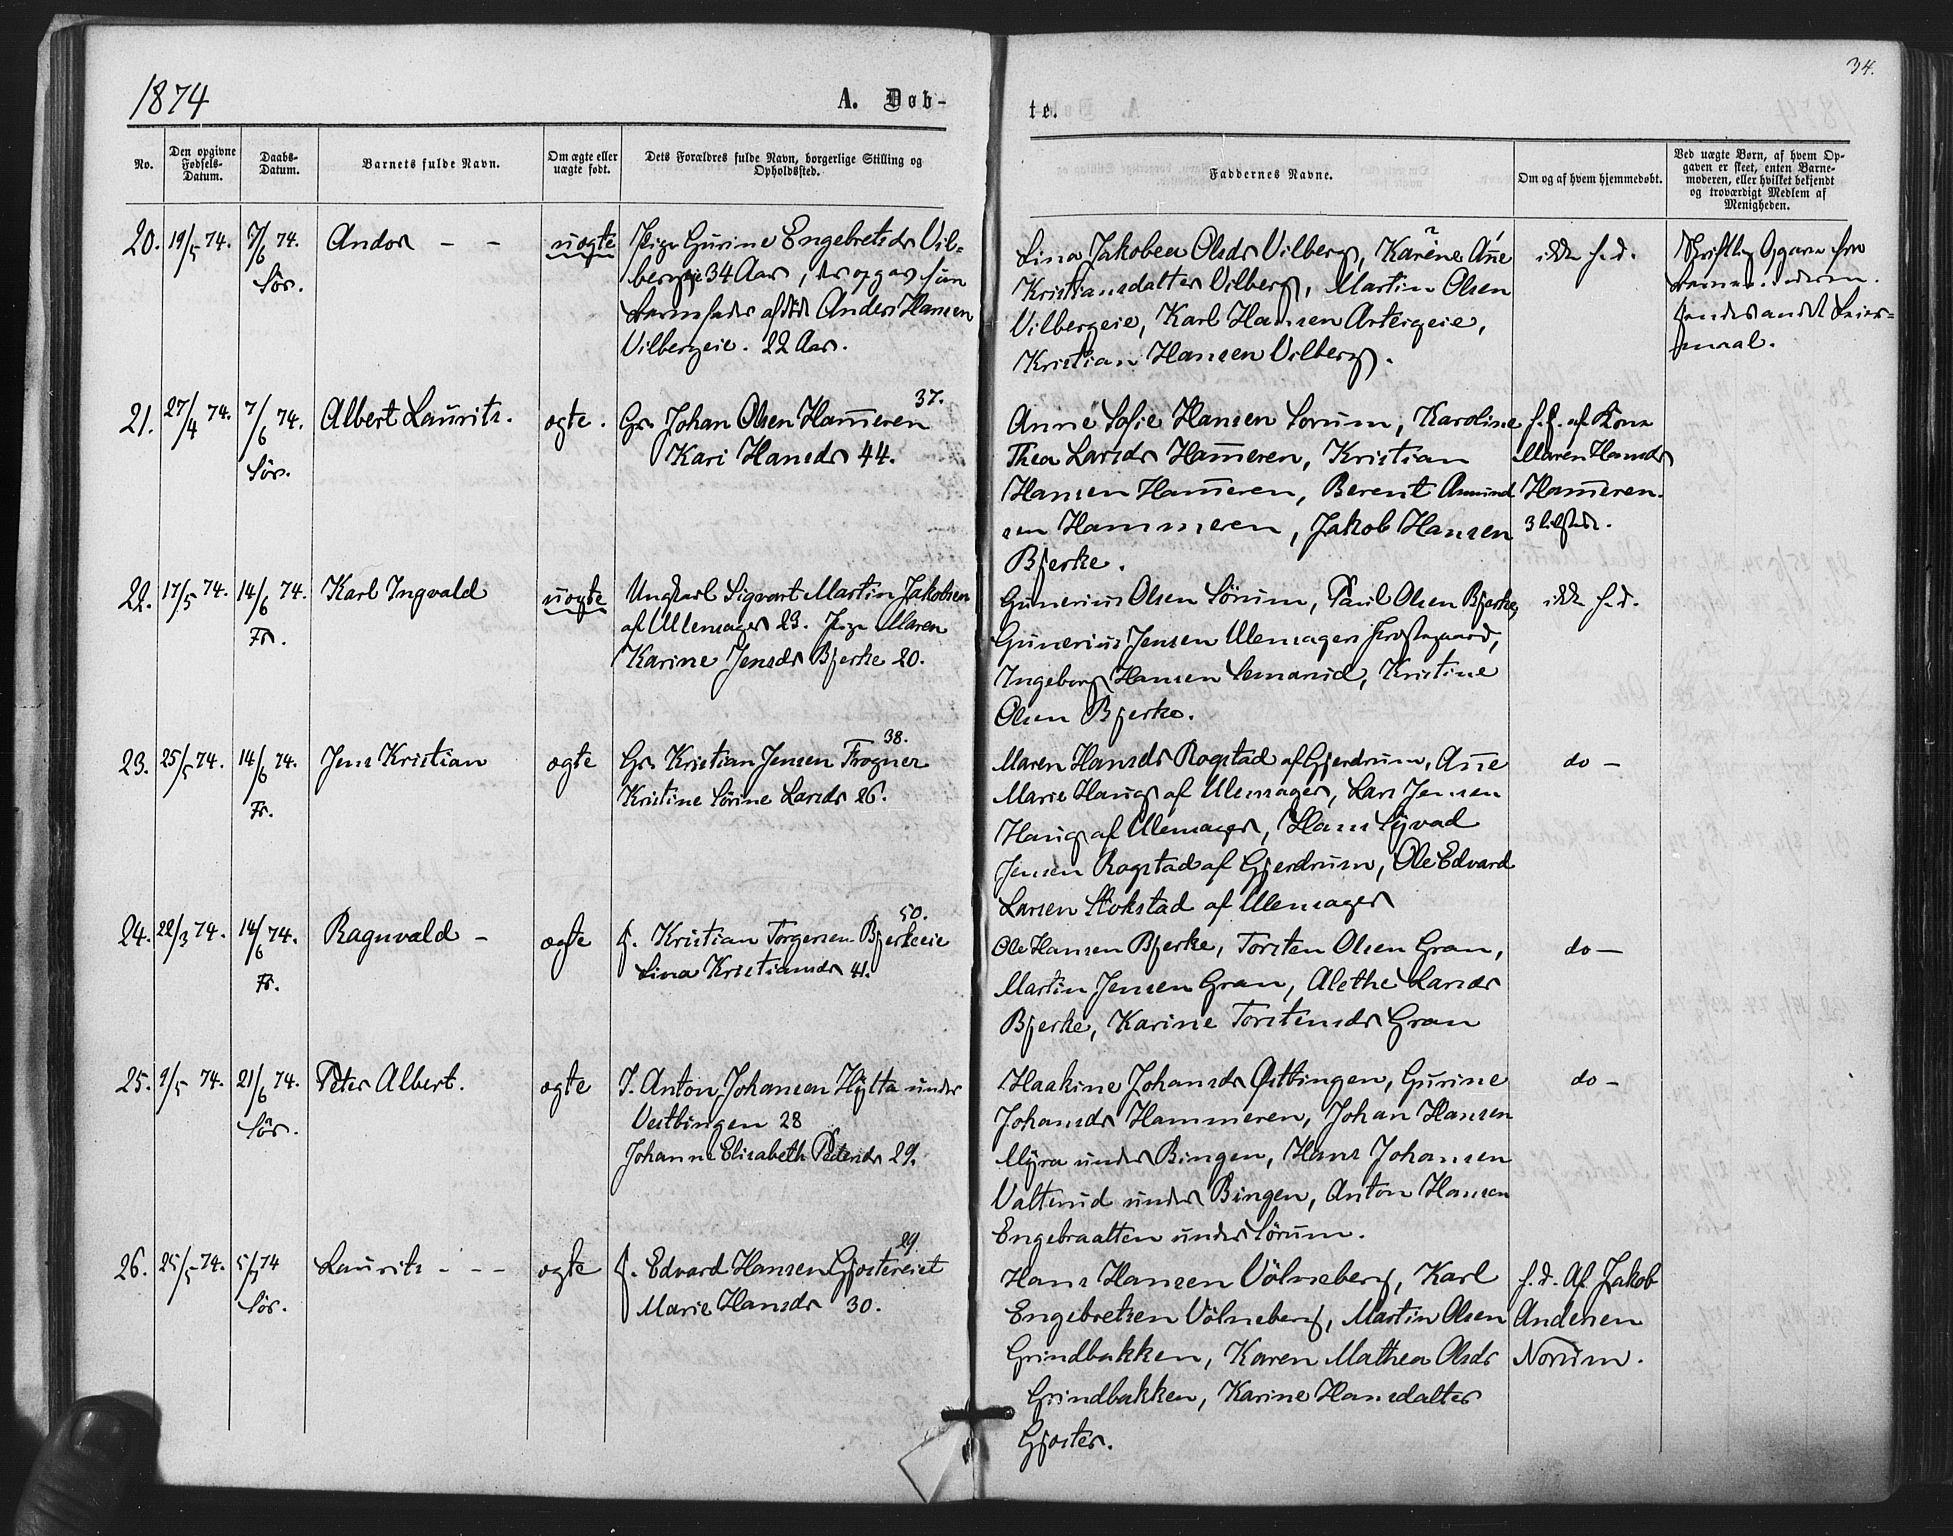 1874
A. Døb-
te.
34.
No.
Den opgivne Fødsels-Datum.
Daabs-Datum.
Barnets fulde Navn.
Om ægte eller uægte født.
Dets Forældres fulde Navn, borgerlige Stilling og Opholdssted.
Faddernes Navne.
Om og af hvem hjemmedøbt.
Ved uægte Børn, af hvem Op-
gaven er skeet, enten Barne-
moderen, eller hvilket bekjendt
og troværdigt Medlem af
Menigheden.
20. 19/5 74. 7/6 74. Sør.
Andor - -
uægte
Pige Gurine Engebretsdr Vil-
bergeie 34 Aar, der opgav som
Barnefader afdøde Anders Hansen
Vilbergeie. 22 Aar.
Lina Jakobea Olsdr Vilberg, Karine Añe
Kristiansdatter Vilberg, Martin Olsen
Vilbergeie, Karl Hansen Arteigeie,
Kristian Hansen Vilberg.
ikke h. d.
Skriftlig Opgave fra
Barnemoderen.
hendes andet Leier-
maal.
21. 27/4 74. 7/6 74. Sør.
Albert Laurits.
ægte.
37.
Gr. Johan Olsen Ham̄eren
Kari Hansdr 44.
Anne Sofie Hansen Sørum, Karoline
Thea Larsdr Ham̄eren, Kristian
Hansen Ham̄eren, Berent Amund
sen Hammeren, Jakob Hansen
Bjerke.
h. d. af Kone
Maren Hansdr
Ham̄eren.
22. 17/5 74. 14/6 74. Fr.
Karl Ingvald
uægte
Ungkarl Sigvart Martin Jakobsen
af Ullensager 23. Pige Maren
Karine Jensdr Bjerke 20.
Gunerius Olsen Sörum, Paul Olsen Bjerke,
Gunerius Jensen Ullensager Prestegaard,
Ingeborg Hansen Lemarud, Kristine
Olsen Bjerke.
ikke h. d.
23. 25/5 74. 14/6 74. Fr.
Jens Kristian
ægte
38.
Gr. Kristian Jensen Frogner
Kristine Sörine Larsdr 26.
Maren Hansdr Rogstad af Gjerdrum, Añe
Marie Haug af Ullensager, Lars Jensen
Haug af Ullensager, Hans Syvad
Jensen Rogstad af Gjerdrum, Ole Edvard
Larsen Stokstad af Ullensager
do -
24. 22/3 74. 14/6 74. Fr.
Ragnvald -
ægte
50.
F. Kristian Torgersen Bjerkeeie
Lina Kristiansdr 41.
Ole Hansen Bjerke, Torsten Olsen Gran,
Martin Jensen Gran, Alethe Larsdr
Bjerke, Karine Torstensdr Gran
do -
25. 9/5 74. 21/6 74. Sör.
Peter Albert.
ægte
I. Anton Johansen Hytta under
Vestbingen 28
Johanne Elisabeth Pedersdr 29.
Haakine Johansdr Östbingen, Gurine
Johansdr Hammeren, Johan Hansen
Myra under Bingen, Hans Johansen
Valterud under Bingen, Anton Hansen
Engebraatten under Sörum.
do -
26. 25/5 74. 5/7 74 Sör.
Laurits - - -
ægte
29.
F. Edvard Hansen Gjøstereiet
Marie Hansdr 30.
Hans Hansen Völneberg, Karl
Engebretsen Völneberg, Martin Olsen
Grindbakken, Karen Mathea Olsdr
Grindbakken, Karine Hansdatter
Gjøster.
h. d. Af Jakob
Andersen
Norum.